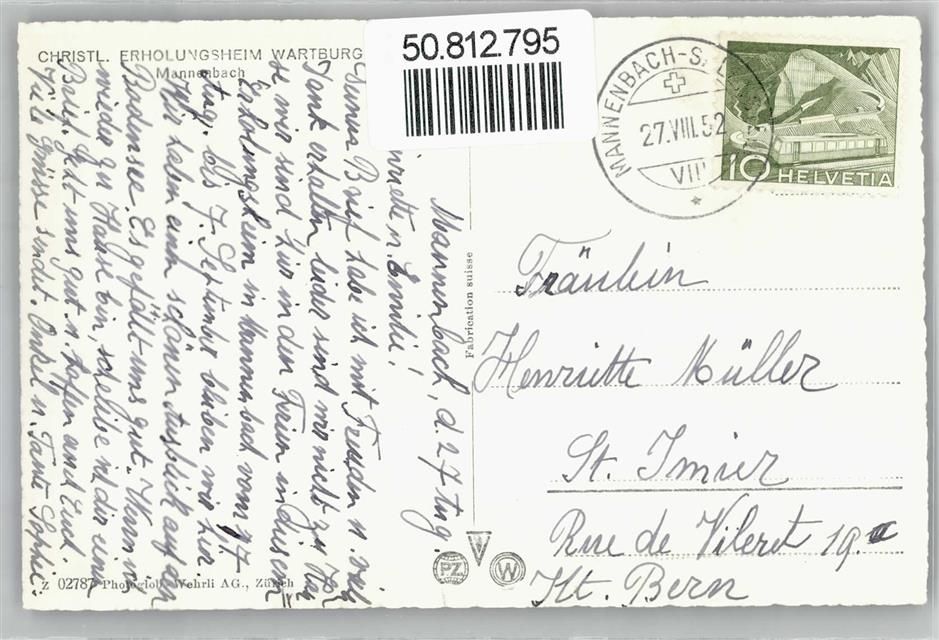 CHRISTL. ERHOLUNGSHEIM WARTBURG
Mannenbach
50.812.795
MANNENBACH-S
27.VIII.52
VII
10 HELVETIA
Mannenbach, d. 27 Aug.
u. Emilie!
Brief habe ich mit Freuden u. viel
Dank erhalten leider sind wir nicht zu Hau
se wir sind hier in den Ferien in diesem
Erholungsheim in Mannenbach vom 17.
Aug. bis 7. September bleiben wir hier
Wir haben einen schönen Ausblick auf den
Bodensee. Es gefällt uns gut. Wenn wir
wieder zu Hause bin, schreibe ich dir einen
Brief. Geht uns gut u. hoffen auch Euch.
Viele Grüsse sendet. Onkel u. Tante Sophie.
Fabrication suisse
Fräulein
Henriette Müller
St. Imier
Rue de Vileret 19a
Kt. Bern
PZ W
Z 02787 Photoglob-Wehrli AG., Zürich